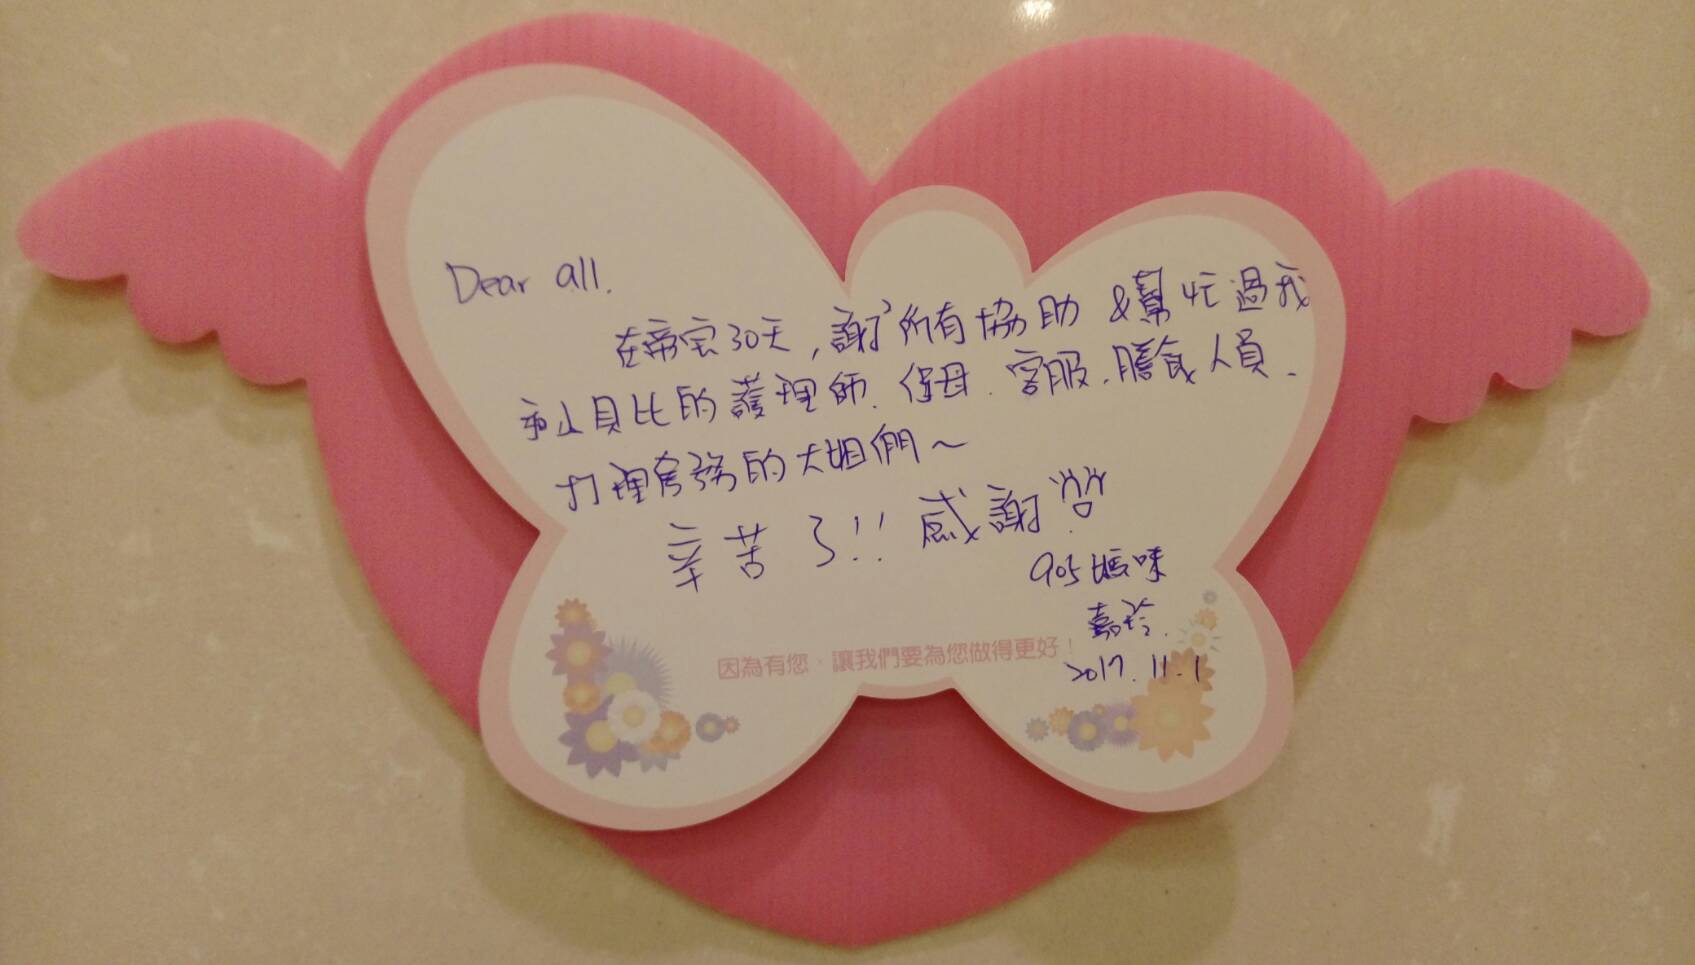 Dear all.
在帝宝30天,謝謝所有協助&幫忙過我
和貝比的護理師、保母、客服、膳食人員、
打理房務的大姐們~
辛苦了!! 感謝
905媽咪
嘉玲.
因為有您,讓我們要為您做得更好!
2017.11.1